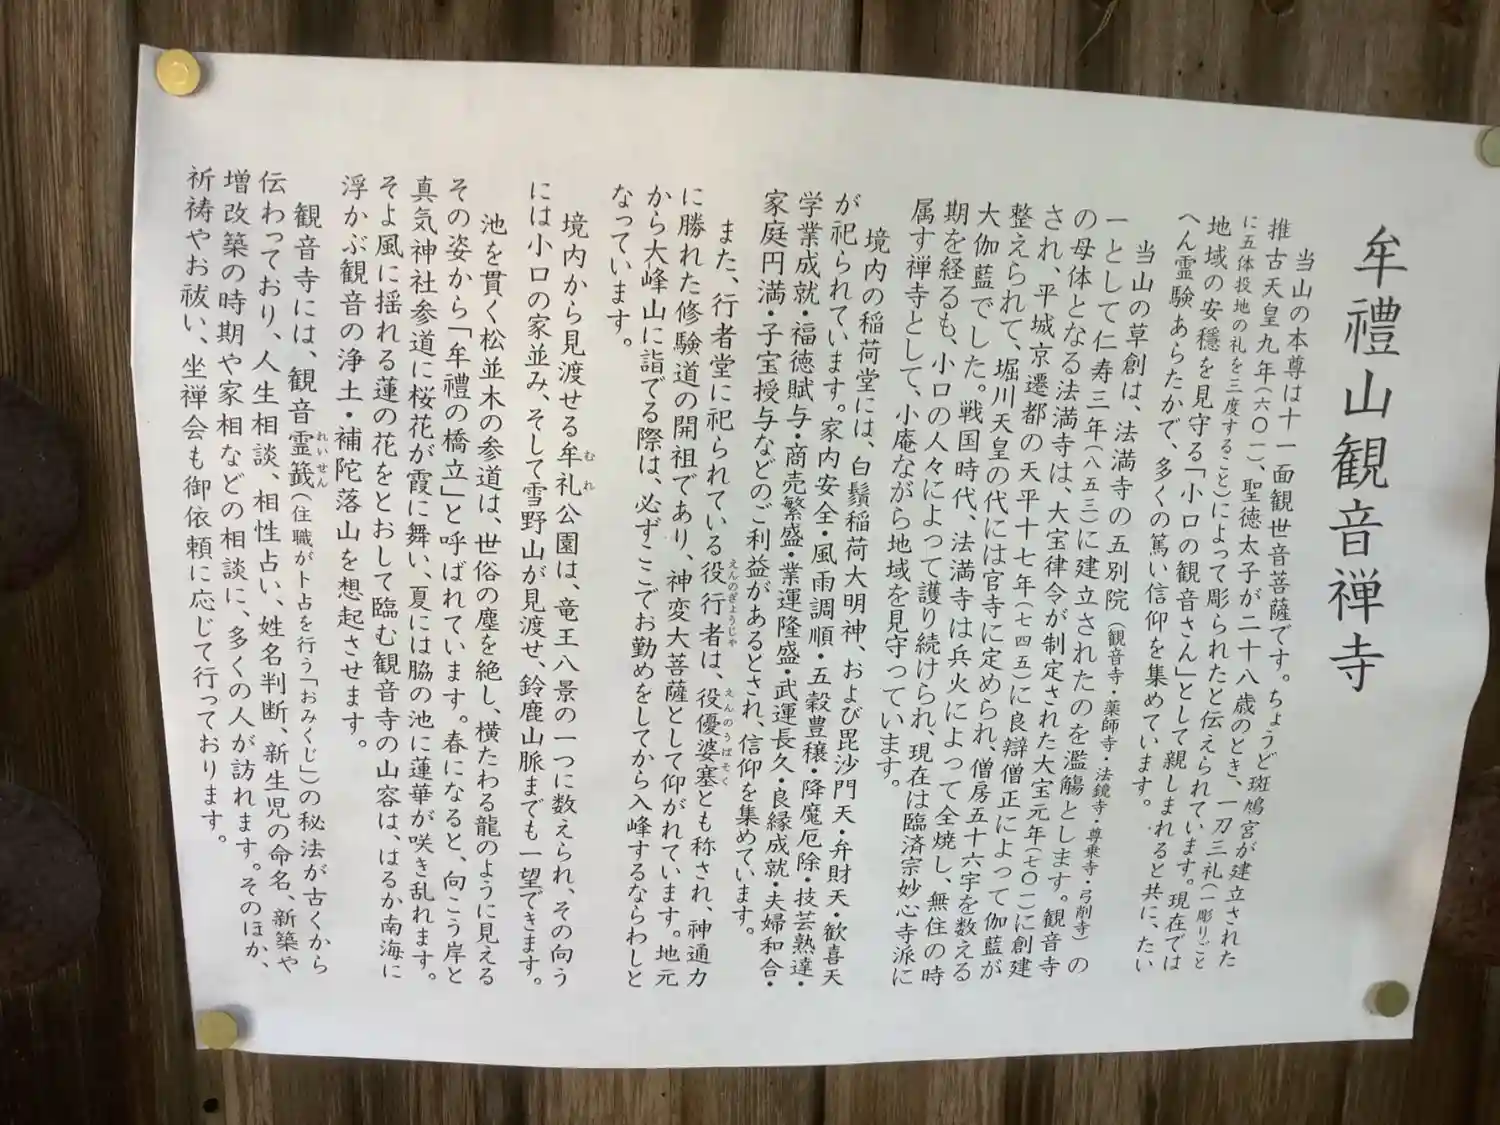 牟禮山観音禅寺
当山の本尊は十一面観世音菩薩です。ちょうど斑鳩宮が建立された
推古天皇九年（六〇一）、聖徳太子が二十八歳のとき、一刀三礼（一彫りごと
に五体投地の礼を三度すること）によって彫られたと伝えられています。現在では
地域の安穏を見守る「小口の観音さん」として親しまれると共に、たい
へん霊験あらたかで、多くの篤い信仰を集めています。
当山の草創は、法満寺の五別院（観音寺・薬師寺・法鏡寺・尊乗寺・弓削寺）の
一として仁寿三年（八五三）に建立されたのを濫觴とします。観音寺
の母体となる法満寺は、大宝律令が制定された大宝元年（七〇一）に創建
され、平城京遷都の天平十七年（七四五）に良辯僧正によって伽藍が
整えられて、堀川天皇の代には官寺に定められ、僧房五十六宇を数える
大伽藍でした。戦国時代、法満寺は兵火によって全焼し、無住の時
期を経るも、小口の人々によって護り続けられ、現在は臨済宗妙心寺派に
属す禅寺として、小庵ながら地域を見守っています。
境内の稲荷堂には、白鬚稲荷大明神、および毘沙門天・弁財天・歓喜天
が祀られています。家内安全・風雨調順・五穀豊穣・降魔厄除・技芸熟達・
学業成就・福徳賦与・商売繁盛・業運隆盛・武運長久・良縁成就・夫婦和合・
家庭円満・子宝授与などのご利益があるとされ、信仰を集めています。
また、行者堂に祀られている役行者は、役優婆塞とも称され、神通力
えんのぎょうじゃ
えんのうばそく
に勝れた修験道の開祖であり、神変大菩薩として仰がれています。地元
から大峰山に詣でる際は、必ずここでお勤めをしてから入峰するならわしと
なっています。
境内から見渡せる牟礼公園は、竜王八景の一つに数えられ、その向う
むれ
には小口の家並み、そして雪野山が見渡せ、鈴鹿山脈までも一望できます。
池を貫く松並木の参道は、世俗の塵を絶し、横たわる龍のように見える
その姿から「牟禮の橋立」と呼ばれています。春になると、向こう岸と
真気神社参道に桜花が霞に舞い、夏には脇の池に蓮華が咲き乱れます。
そよ風に揺れる蓮の花をとおして臨む観音寺の山容は、はるか南海に
浮かぶ観音の浄土・補陀落山を想起させます。
観音寺には、観音霊籤（住職が卜占を行う「おみくじ」）の秘法が古くから
れいせん
伝わっており、人生相談、相性占い、姓名判断、新生児の命名、新築や
増改築の時期や家相などの相談に、多くの人が訪れます。そのほか、
祈祷やお祓い、坐禅会も御依頼に応じて行っております。